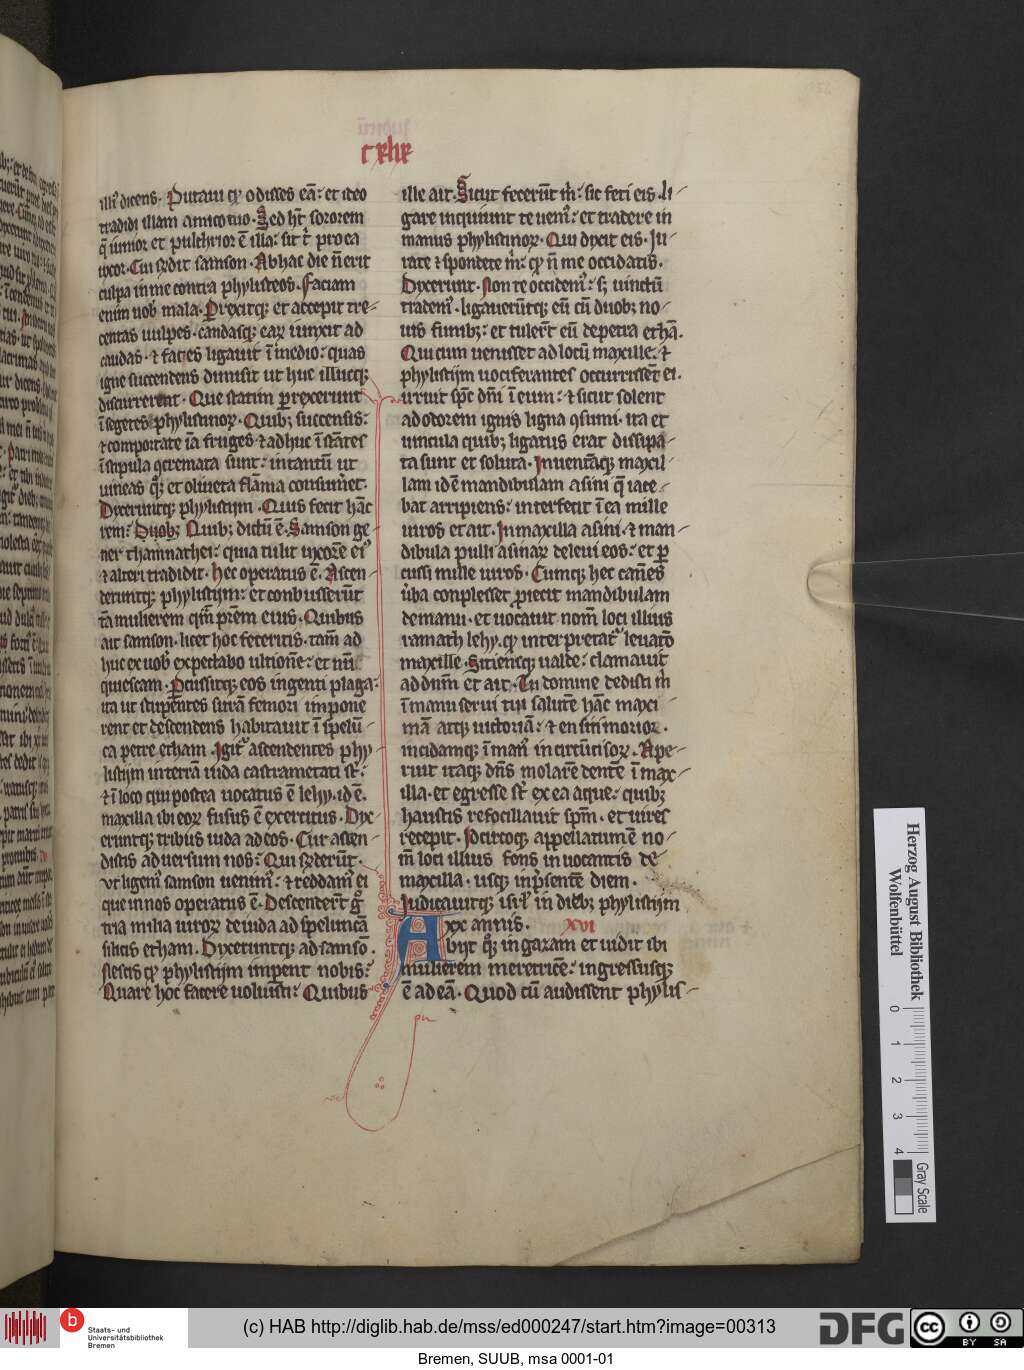 cxlix
illi dicens. Putaui qꝫ odisses eā: et ideo
tradidi illam amico tuo. Sed hꝫ sororem
q̄ iunior et pulchrior ē illa: sit t̄ pro ea
uxor. Cui r̄ndit samson. Ab hac die n̄ erit
culpa in me contra phylisteos. Faciam
enim uob̄ mala. Prexitqꝫ et accepit tre-
centas uulpes. candasqꝫ eaꝝ iunxit ad
caudas. ⁊ faces ligauit ī medio: quas
igne succendens dimisit ut huc illucqꝫ
discurrerent. Que statim prexerunt
ī segetes phylistinoꝝ. Quibꝫ succensis:
⁊ comportate iā fruges ⁊ adhuc ī stātes
ī stipula ꝯcremata sunt: intantū ut
uineas qꝫ et oliueta flāma consumet.
Dyceruntqꝫ phylistijm. Quis fecit hāc
rem: Quibꝫ dictū ē. Samson ge-
ner thamnathei: quia tulit uxorē eiꝰ
⁊ alteri tradidit. hec operatus ē. Ascen-
deruntqꝫ phylistijm: et conbusserūt
tā mulierem qm̄ prēm eius. Quibus
ait samson. licet hoc feceritis. tam̄ ad
huc ex uob̄ expectabo ultionē: et tūc
quiescam. Pcussitqꝫ eos ingenti plaga:
ita ut stupentes surā femori impone
rent et descendens habitauit ī spelū-
ca petre etham. Igiť ascendentes phy-
listijm in terrā iuda castrametati sť:
⁊ ī loco qui postea uocatus ē lehy. id ē.
maxilla ibi eoꝝ fusus ē exercitus. Dyx-
eruntqꝫ tribus iuda ad eos. Cur ascen-
distis aduersum nos: Qui r̄nderūt.
Vt ligemꝰ samson uenimꝰ: ⁊ reddamꝰ ei
que in nos operatus ē. Descenderūt gͦ
tria milia uiroꝝ de iuda ad speluncā
silicis etham. Dixeruntqꝫ ad samsō.
Nescis qꝫ phylistijm impent nobis:
Quare hoc facere uoluisti: Quibus
ille ait. Sicut fecerūt m̄: sic feci eis. Li-
gare inquiunt te uenimꝰ: et tradere in
manus phylistinoꝝ. Qui dyxit eis. Iu-
rate ⁊ spondete m̄: qꝫ n̄ me occidatis.
Dyxerunt. Non te occidemꝰ: sꝫ uinctū
trademꝰ. ligauerūtqꝫ eū cū duobꝫ no-
uis funibꝫ: et tulert̄ eū de petra ethā.
Qui cum uenisset ad locū maxille: ⁊
phylistijm uociferantes occurrissēt ei.
irruit sp̄c dn̄i ī eum: ⁊ sicut solent
ad odorem ignis ligna ꝯsumi. ita et
uincula quibꝫ ligatus erat dissipa-
ta sunt et soluta. Inuentāqꝫ maxil-
lam id ē mandibulam asini q̄ iace-
bat arripiens: interfecit ī ea mille
uiros et ait. In maxilla asini. ⁊ man-
dibula pulli asinaꝝ deleui eos: et p̄
cussi mille uiros. Cumqꝫ hec canēs
ūba conplesset proiecit mandibulam
de manu. et uocauit nom̄ loci illius
ramath lehy. qꝫ interpretať leuatō
maxille. Sitiensqꝫ ualde: clamauit
ad dn̄m et ait. Tu domine dedisti in
ī manu serui tui salutē hāc maxi
mā atqꝫ uictoriā: ⁊ en siti morior.
incidamqꝫ ī manꝰ in circūcisoꝝ. Ape-
ruit itaqꝫ dn̄s molarē dentē ī max-
illa. et egresse sť ex ea aque: quibꝫ
haustis refocillauit sp̄m. et uires
recepit. Idcircoqꝫ appellatum ē no-
m̄ loci illius fons inuocantis de
maxilla. usqꝫ in p̄sentē diem.
Iudicauitqꝫ isrl̄ in diebꝫ phylistijm
xx annis. XVI
Abijt qꝫ in gazam et uidit ibi
mulierem meretricē: ingressusqꝫ
ē ad eā. Quod cū audissent phylis-
Herzog August Bibliothek
Wolfenbüttel
0 1 2 3 4
Gray Scale
b
Staats- und
Universitätsbibliothek
Bremen
(c) HAB http://diglib.hab.de/mss/ed000247/start.htm?image=00313
DFG
cc BY SA
Bremen, SUUB, msa 0001-01